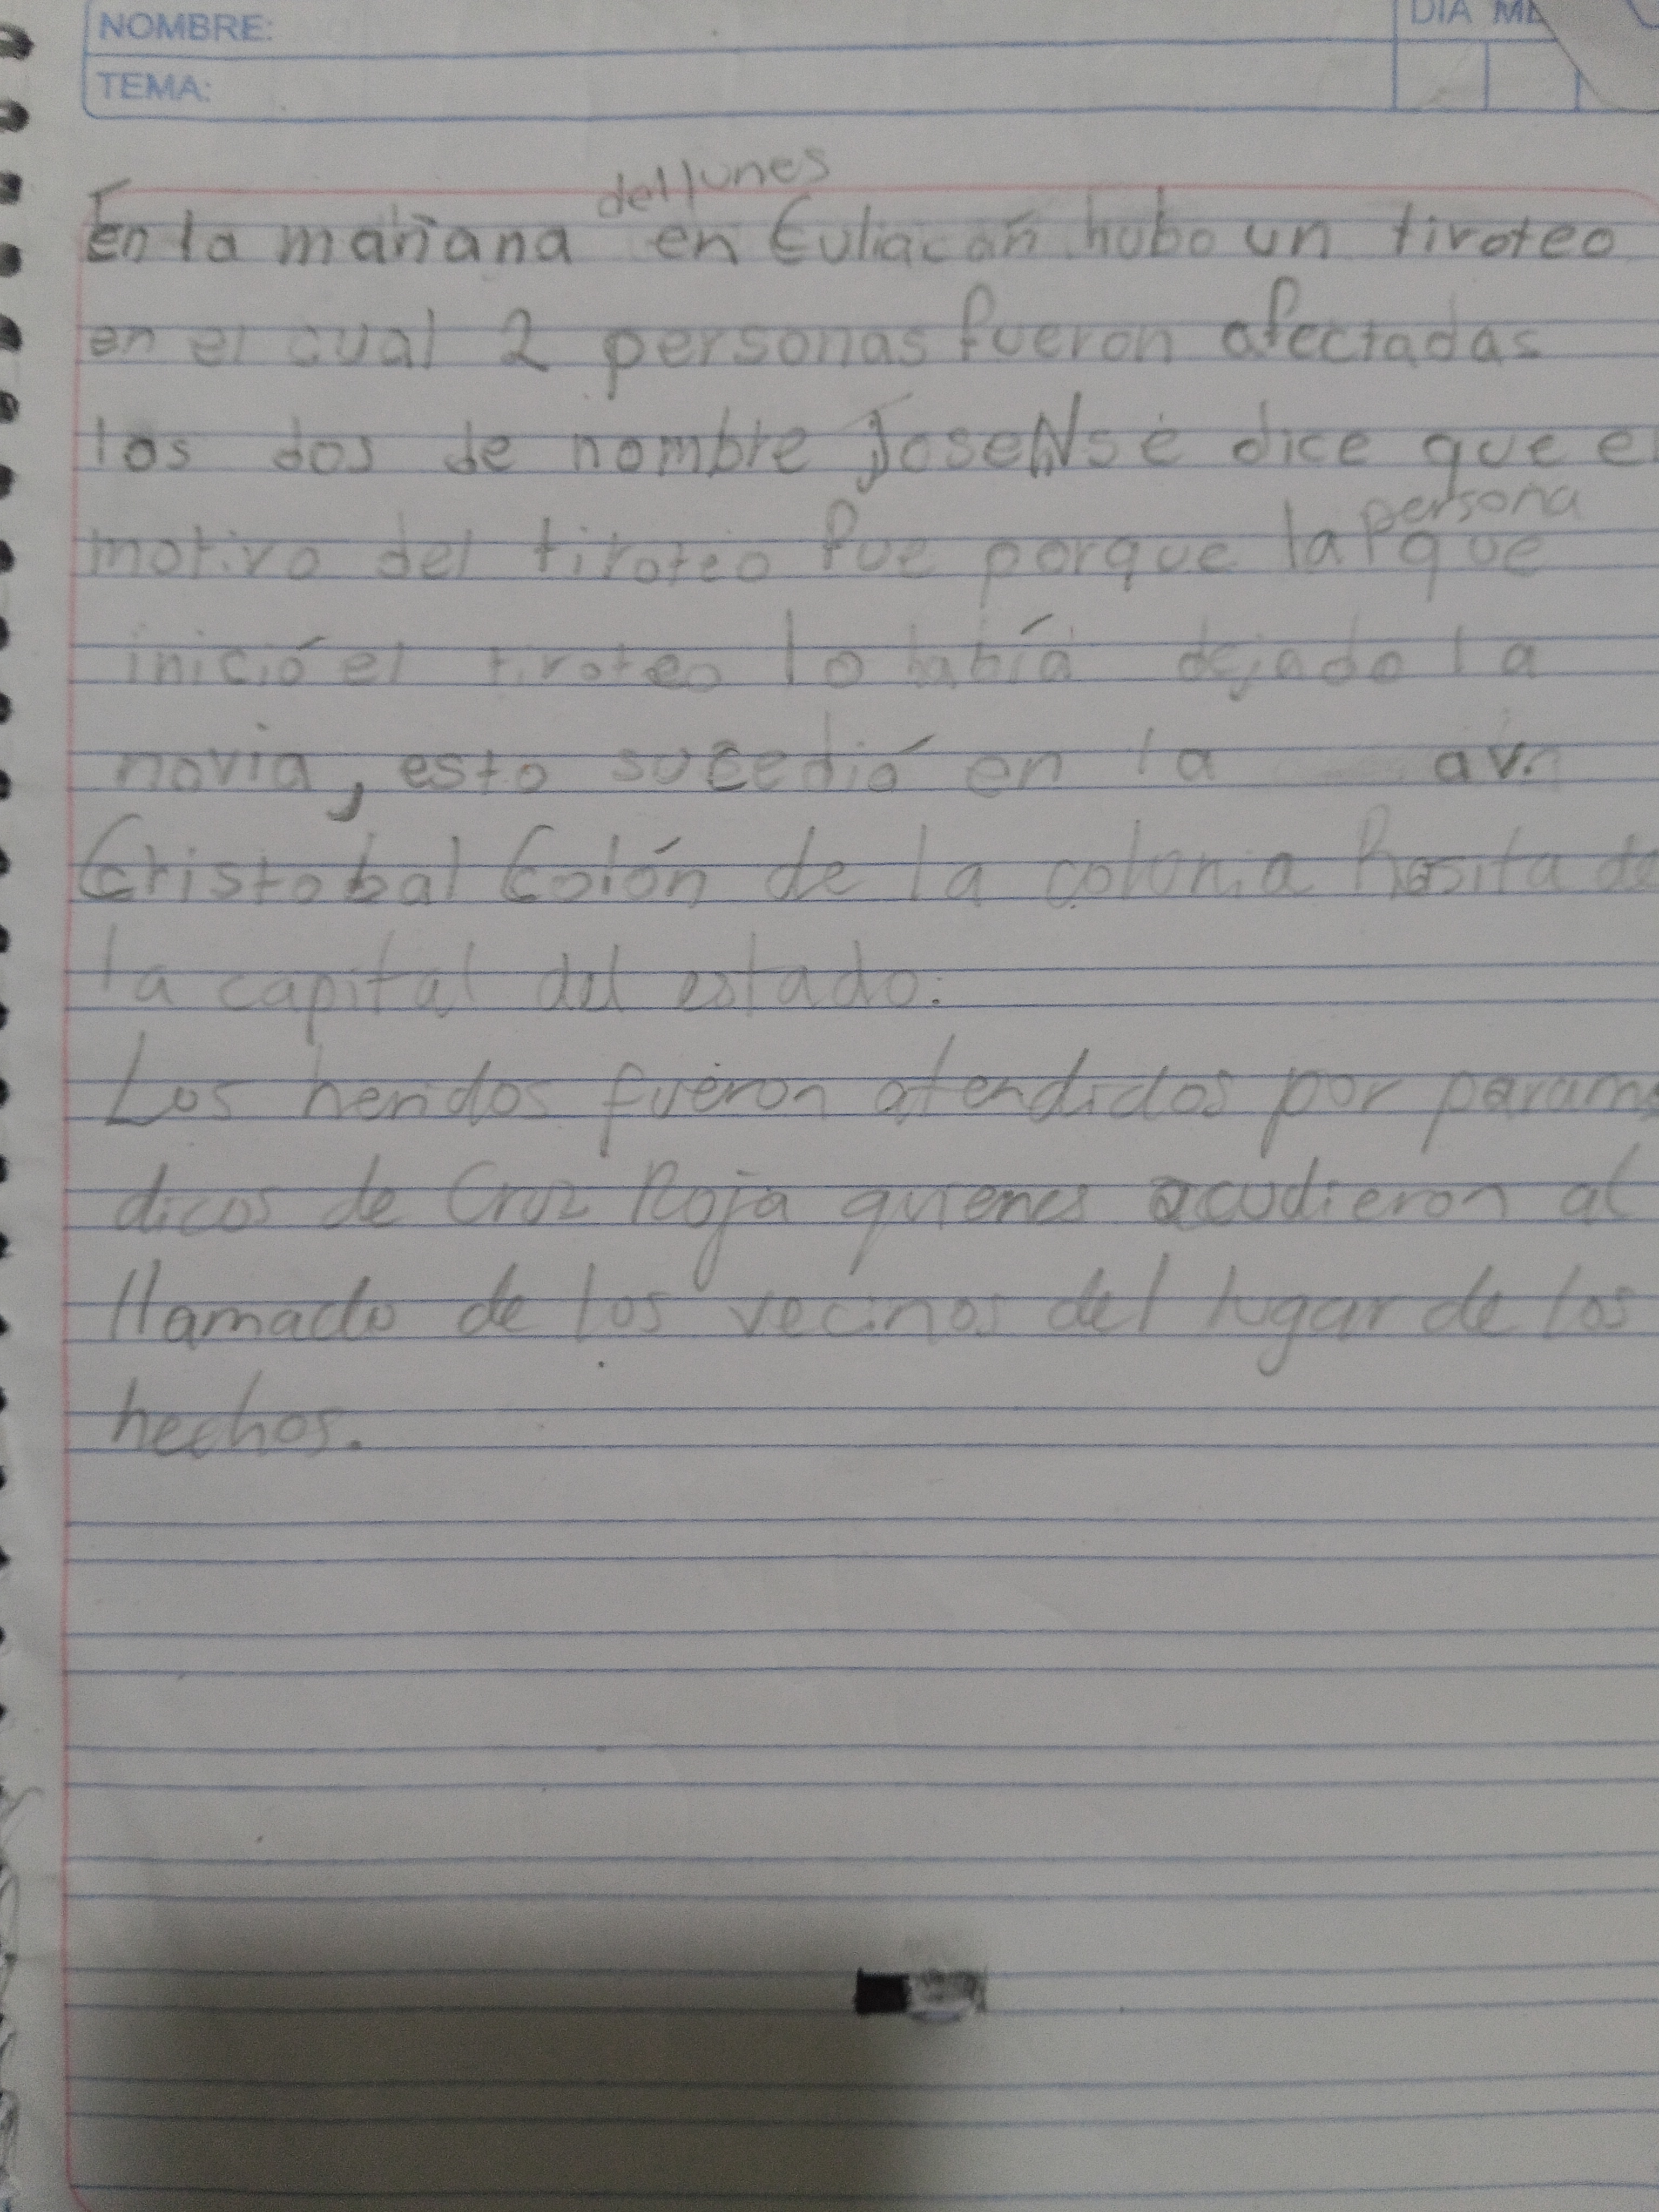 NOMBRE:
DIA
TEMA:
En la mañana del lunes en Culiacán hubo un tiroteo
en el cual 2 personas fueron afectadas
los dos de nombre Jose N se dice que el
motivo del tiroteo fue porque la persona que
inició el tiroteo lo había dejado la
novia, esto sucedió en la av.
Cristobal Colón de la colonia Rosita de
la capital del estado.
Los heridos fueron atendidos por paramé
dicos de Cruz Roja quienes acudieron al
llamado de los vecinos del lugar de los
hechos.